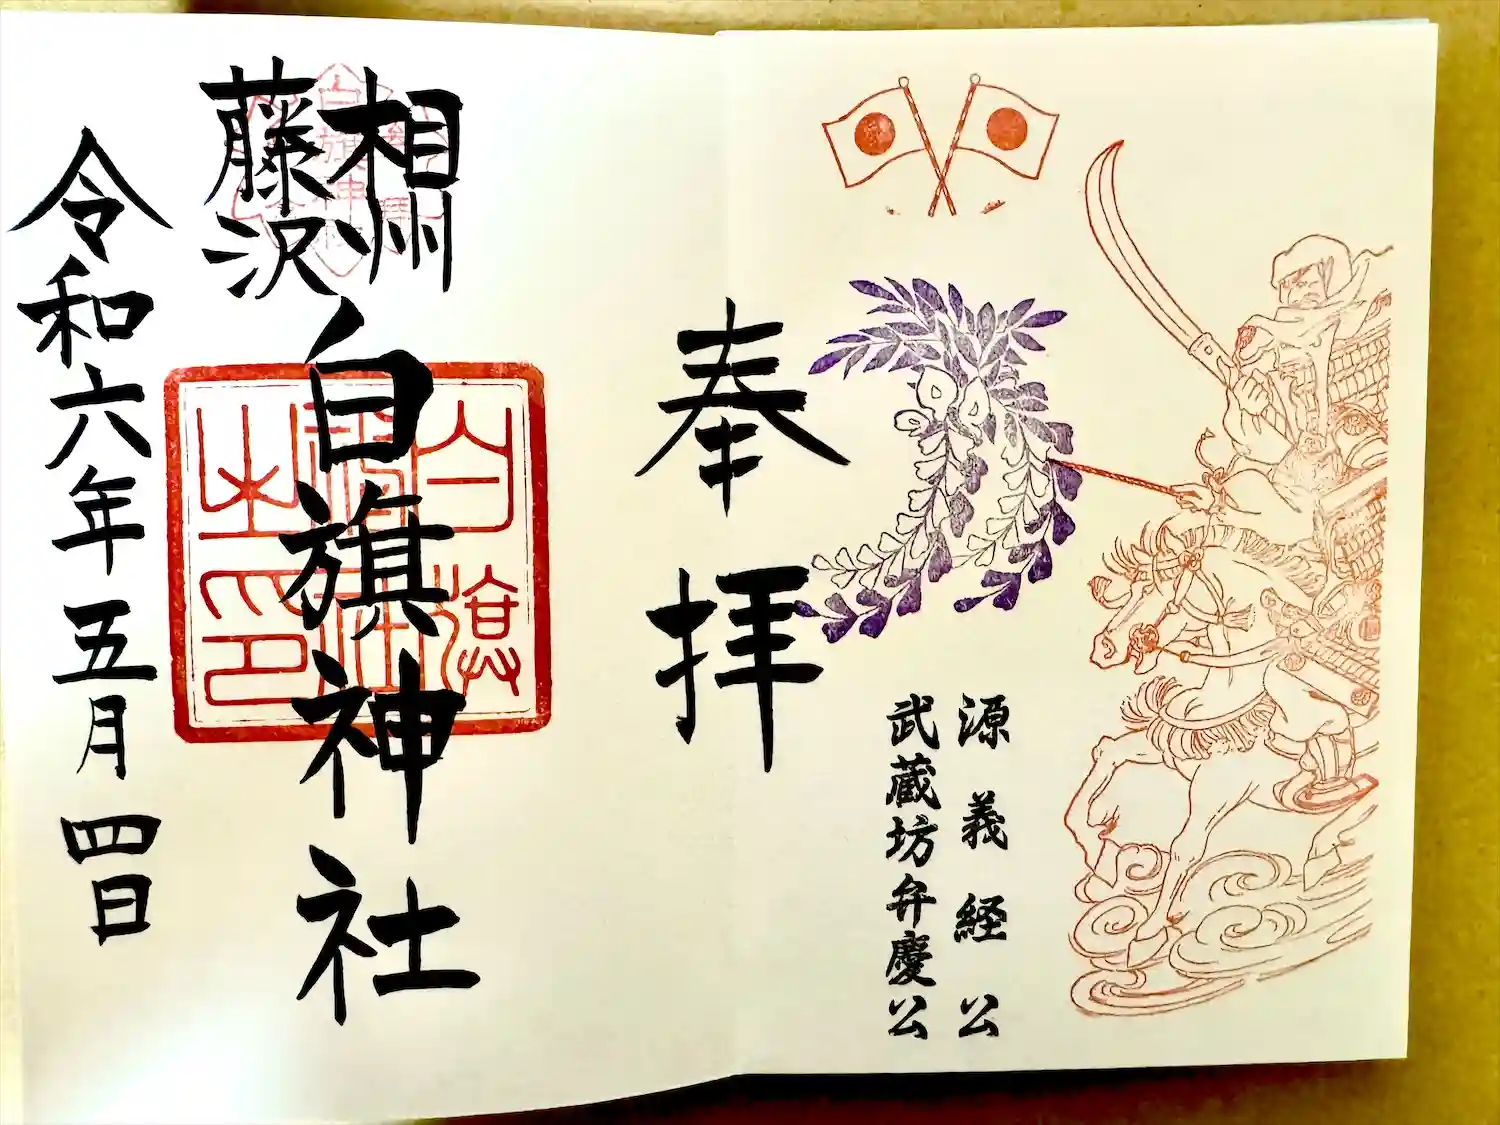 源義経公
武蔵坊弁慶公
奉拝
相州
藤沢
白旗神社
白旗
神社
之印
令和六年五月四日